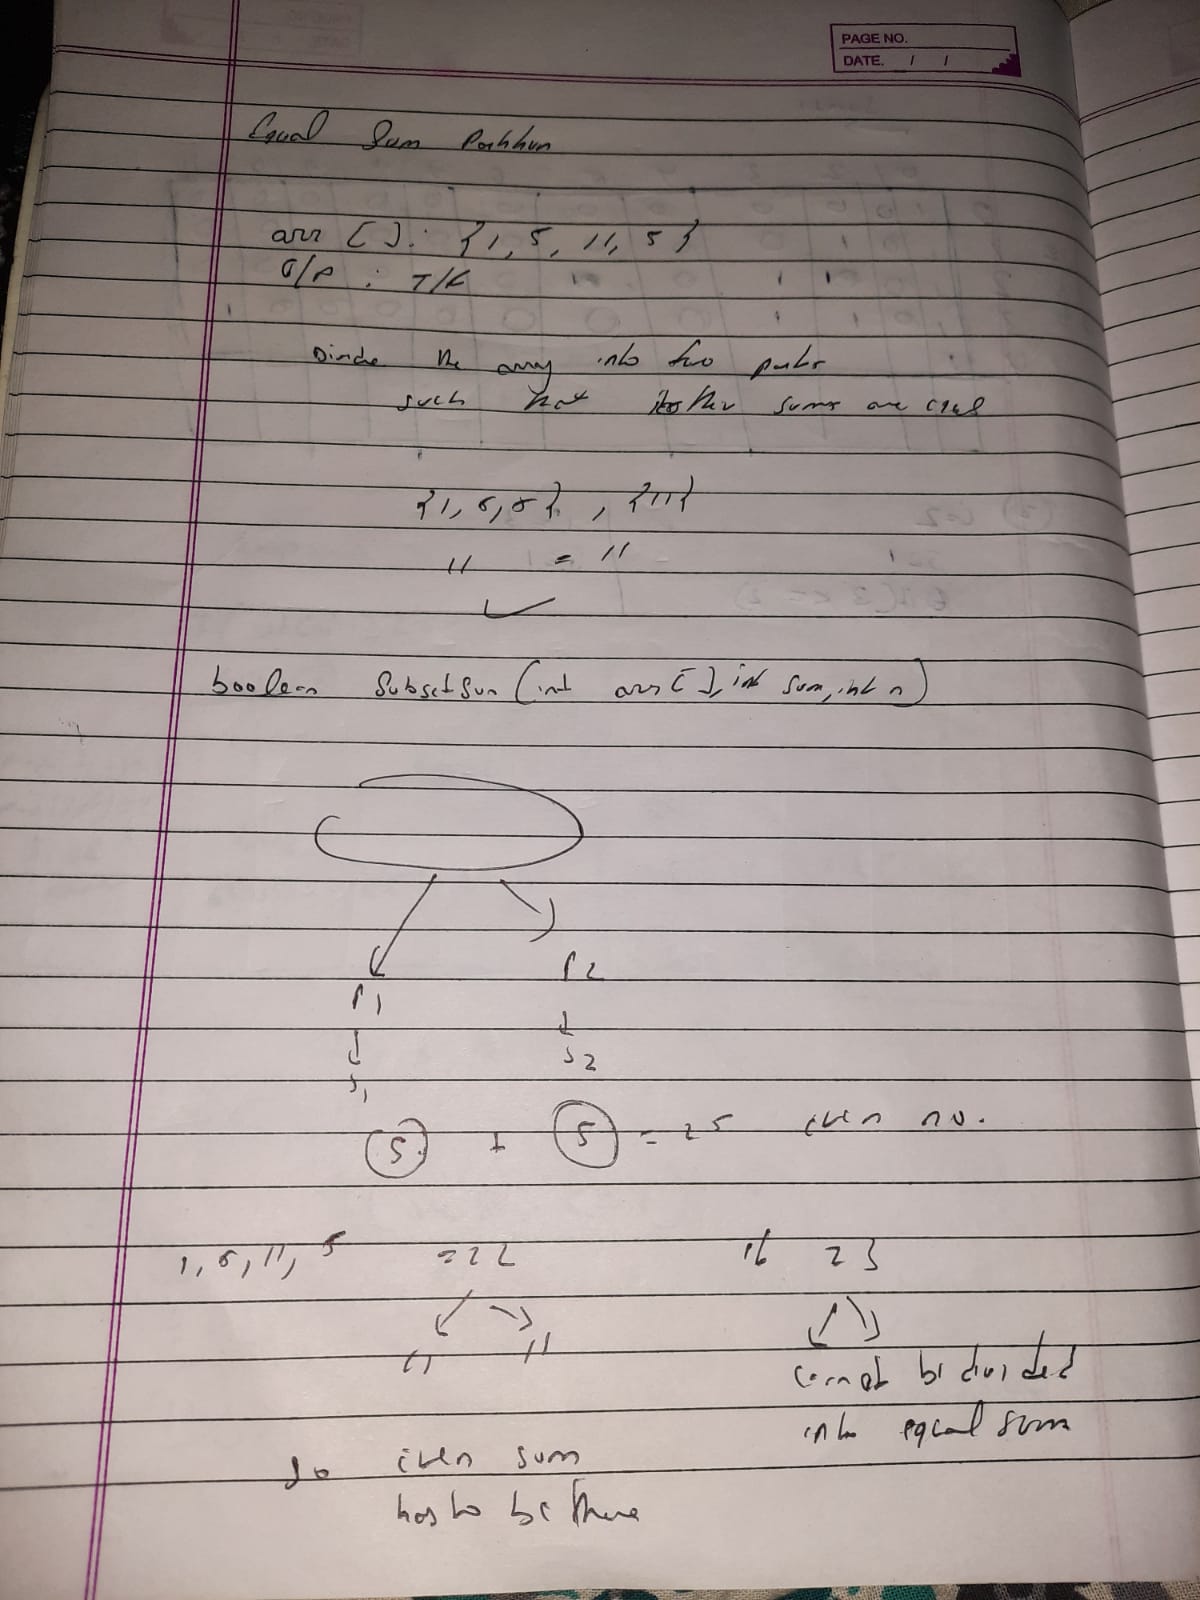 PAGE NO.
DATE. / /
Equal Sum Partition
arr [ ] : {1, 5, 11, 5}
O/P : T/F
Divide the array into two parts
such that their sums are equal
{1, 5, 5} , {11}
11 = 11
boolean SubsetSum (int arr [ ], int sum, int n)
P1 P2
S1 S2
S + S = 2S even no.
1, 5, 11, 5 = 22 if 23
11 11
cannot be divided
into equal sum
So even sum
has to be there